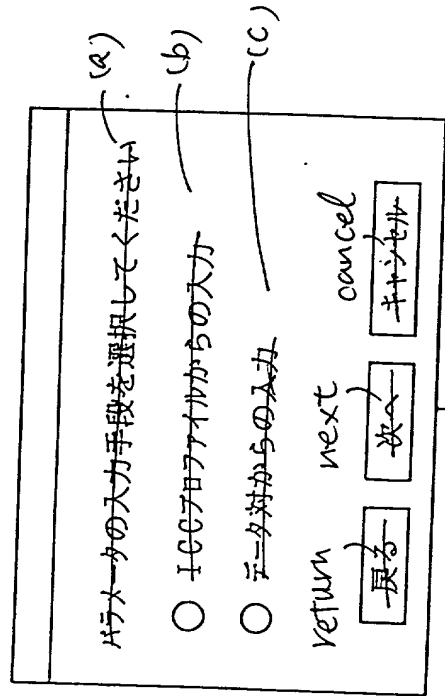 パラメータの入力手段を選択してください (a)
ICCプロファイルからの入力 (b)
データ対からの入力 (c)
return next cancel
戻る 次へ キャンセル